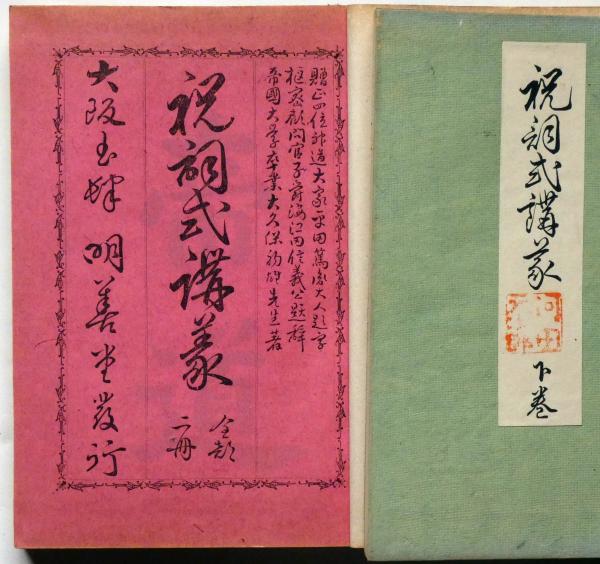 祝詞式講義
下巻
贈正四位神道大家平田篤胤大人題字
枢密顧問官子爵海江田信義公題辞
帝國大學卒業大久保初雄先生著
祝詞式講義
全部
二冊
大阪書肆 明善堂發行